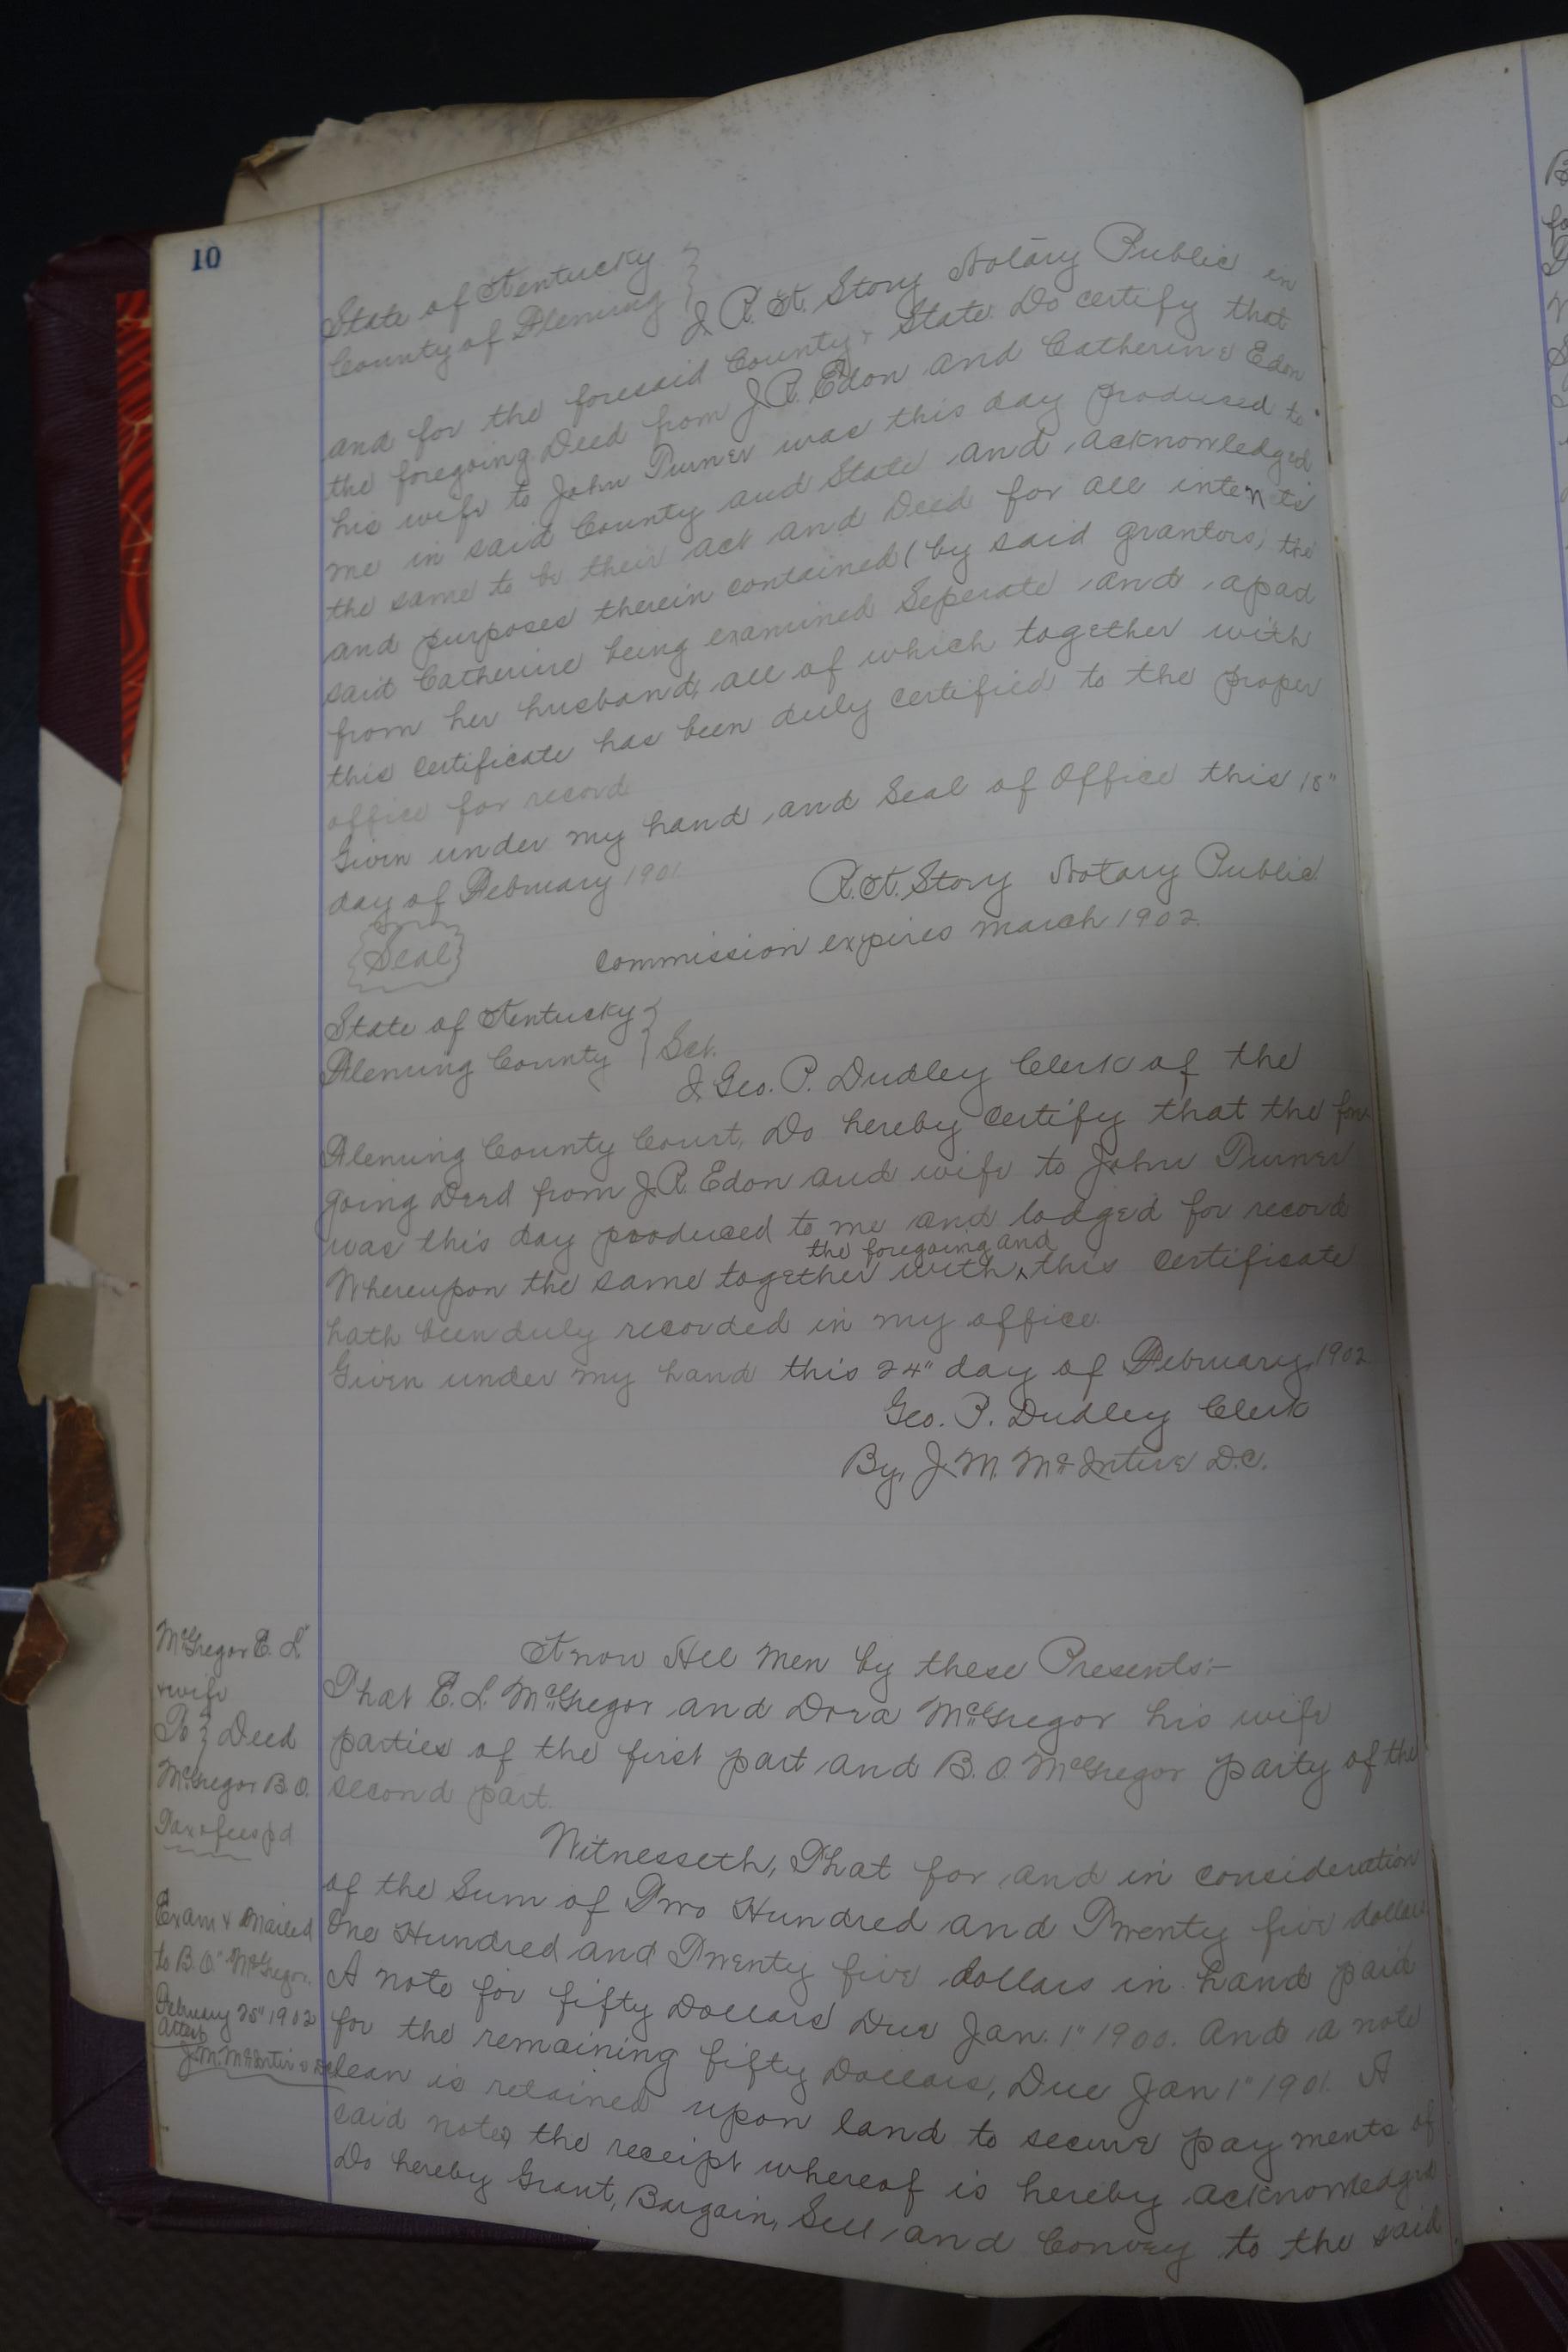 10
State of Kentucky }
County of Fleming }
I R. K. Story Notary Public in
and for the foresaid County & State Do certify that
the foregoing Deed from J. R. Edon and Catherine Edon
his wife to John Turner was this day prodused to
me in said County and State and acknowledged
the same to be their act and Deed for all intents
and purposes therein contained (by said grantors) the
said Catherine being examined Seperate and apart
from her husband, all of which together with
this Certificate has been duly certified to the proper
office for record
Given under my hand and Seal of Office this 18"
day of February 1901
R. K. Story Notary Public
{Seal}
Commission expires March 1902.
State of Kentucky }
Fleming County } Sct.
I Geo. P. Dudley Clerk of the
Fleming County Court, Do hereby certify that the fore
going Deed from J. R. Edon and wife to John Turner
was this day produced to me and lodged for record
the foregoing and
Whereupon the same together with ^ this certificate
hath been duly recorded in my office
Given under my hand this 24" day of February, 1902
Geo. P. Dudley Clerk
By, J. M. McIntire D.C.
McGregor E. L.
& wife
To } Deed
McGregor B. O.
Tax & fees pd
Exam & Mailed
to B. O. McGregor.
February 25" 1902
Attest
J. M. McIntire DC
Know All Men by these Presents:-
That E. L. McGregor and Dora McGregor his wife
parties of the first part and B. O. McGregor party of the
second part.
Witnesseth, That for and in consideration
of the Sum of Two Hundred and Twenty five dollars
One Hundred and Twenty five dollars in hand paid
A note for fifty Dollars Due Jan. 1" 1900. And a note
for the remaining fifty Dollars, Due Jan 1" 1901. A
lean is retained upon land to secure payments of
said notes, the receipt whereof is hereby acknowledged
Do hereby Grant, Bargain, Sell and Convey to the said